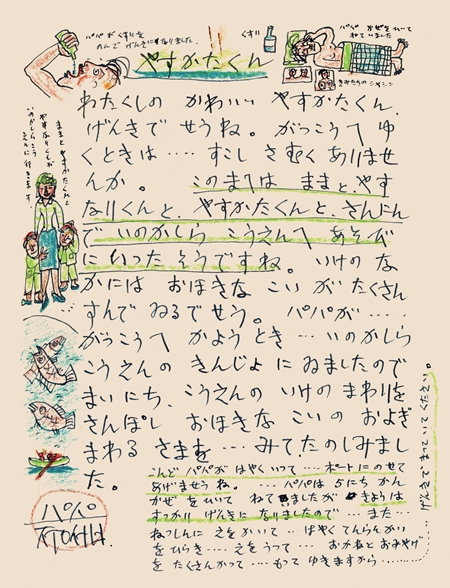 パパがくすりを
のんで げんきに なりました.
くすり
パパ かぜを ひいて
ねて いました
やすかたくん
きみたちの シャシン
わたくしの かわいい やすかたくん.
げんきで せうね。 がっこうへ ゆ
くときは‥‥ すこし さむく ありませ
んか。 このまへは ままと、やす
なりくんと、やすかたくんと、さんにん
で いのかしら こうえんへ あそび
に いった そうですね。 いけの な
かには おほきな こい が たくさん
すんで ゐるでせう。 パパが‥‥
がっこうへ かよう とき‥‥ いのかしら
こうえんの きんじょ に ゐましたので
まいにち、こうえんの いけの まわりを
さんぽし おほきな こいの およぎ
まわる さまを‥‥ みて.たのしみまし
た。
こんど パパが はやく いって‥‥ ボートに のせて
あげませうね。‥‥ パパは 5にち かん
かぜ を ひいて ねて ゐましたが きようは
すっかり げんきに なりましたので‥‥ また‥‥
ねっしんに えを かいて‥‥ はやく てんらんかい
を ひらき‥‥ えを うって‥‥ おかねと おみやげ
を たくさん かって‥‥ もって ゆきますから‥‥
ままと やすかたくんと
やすなりくんが
いのかしらこう
えんに 行き
パパ